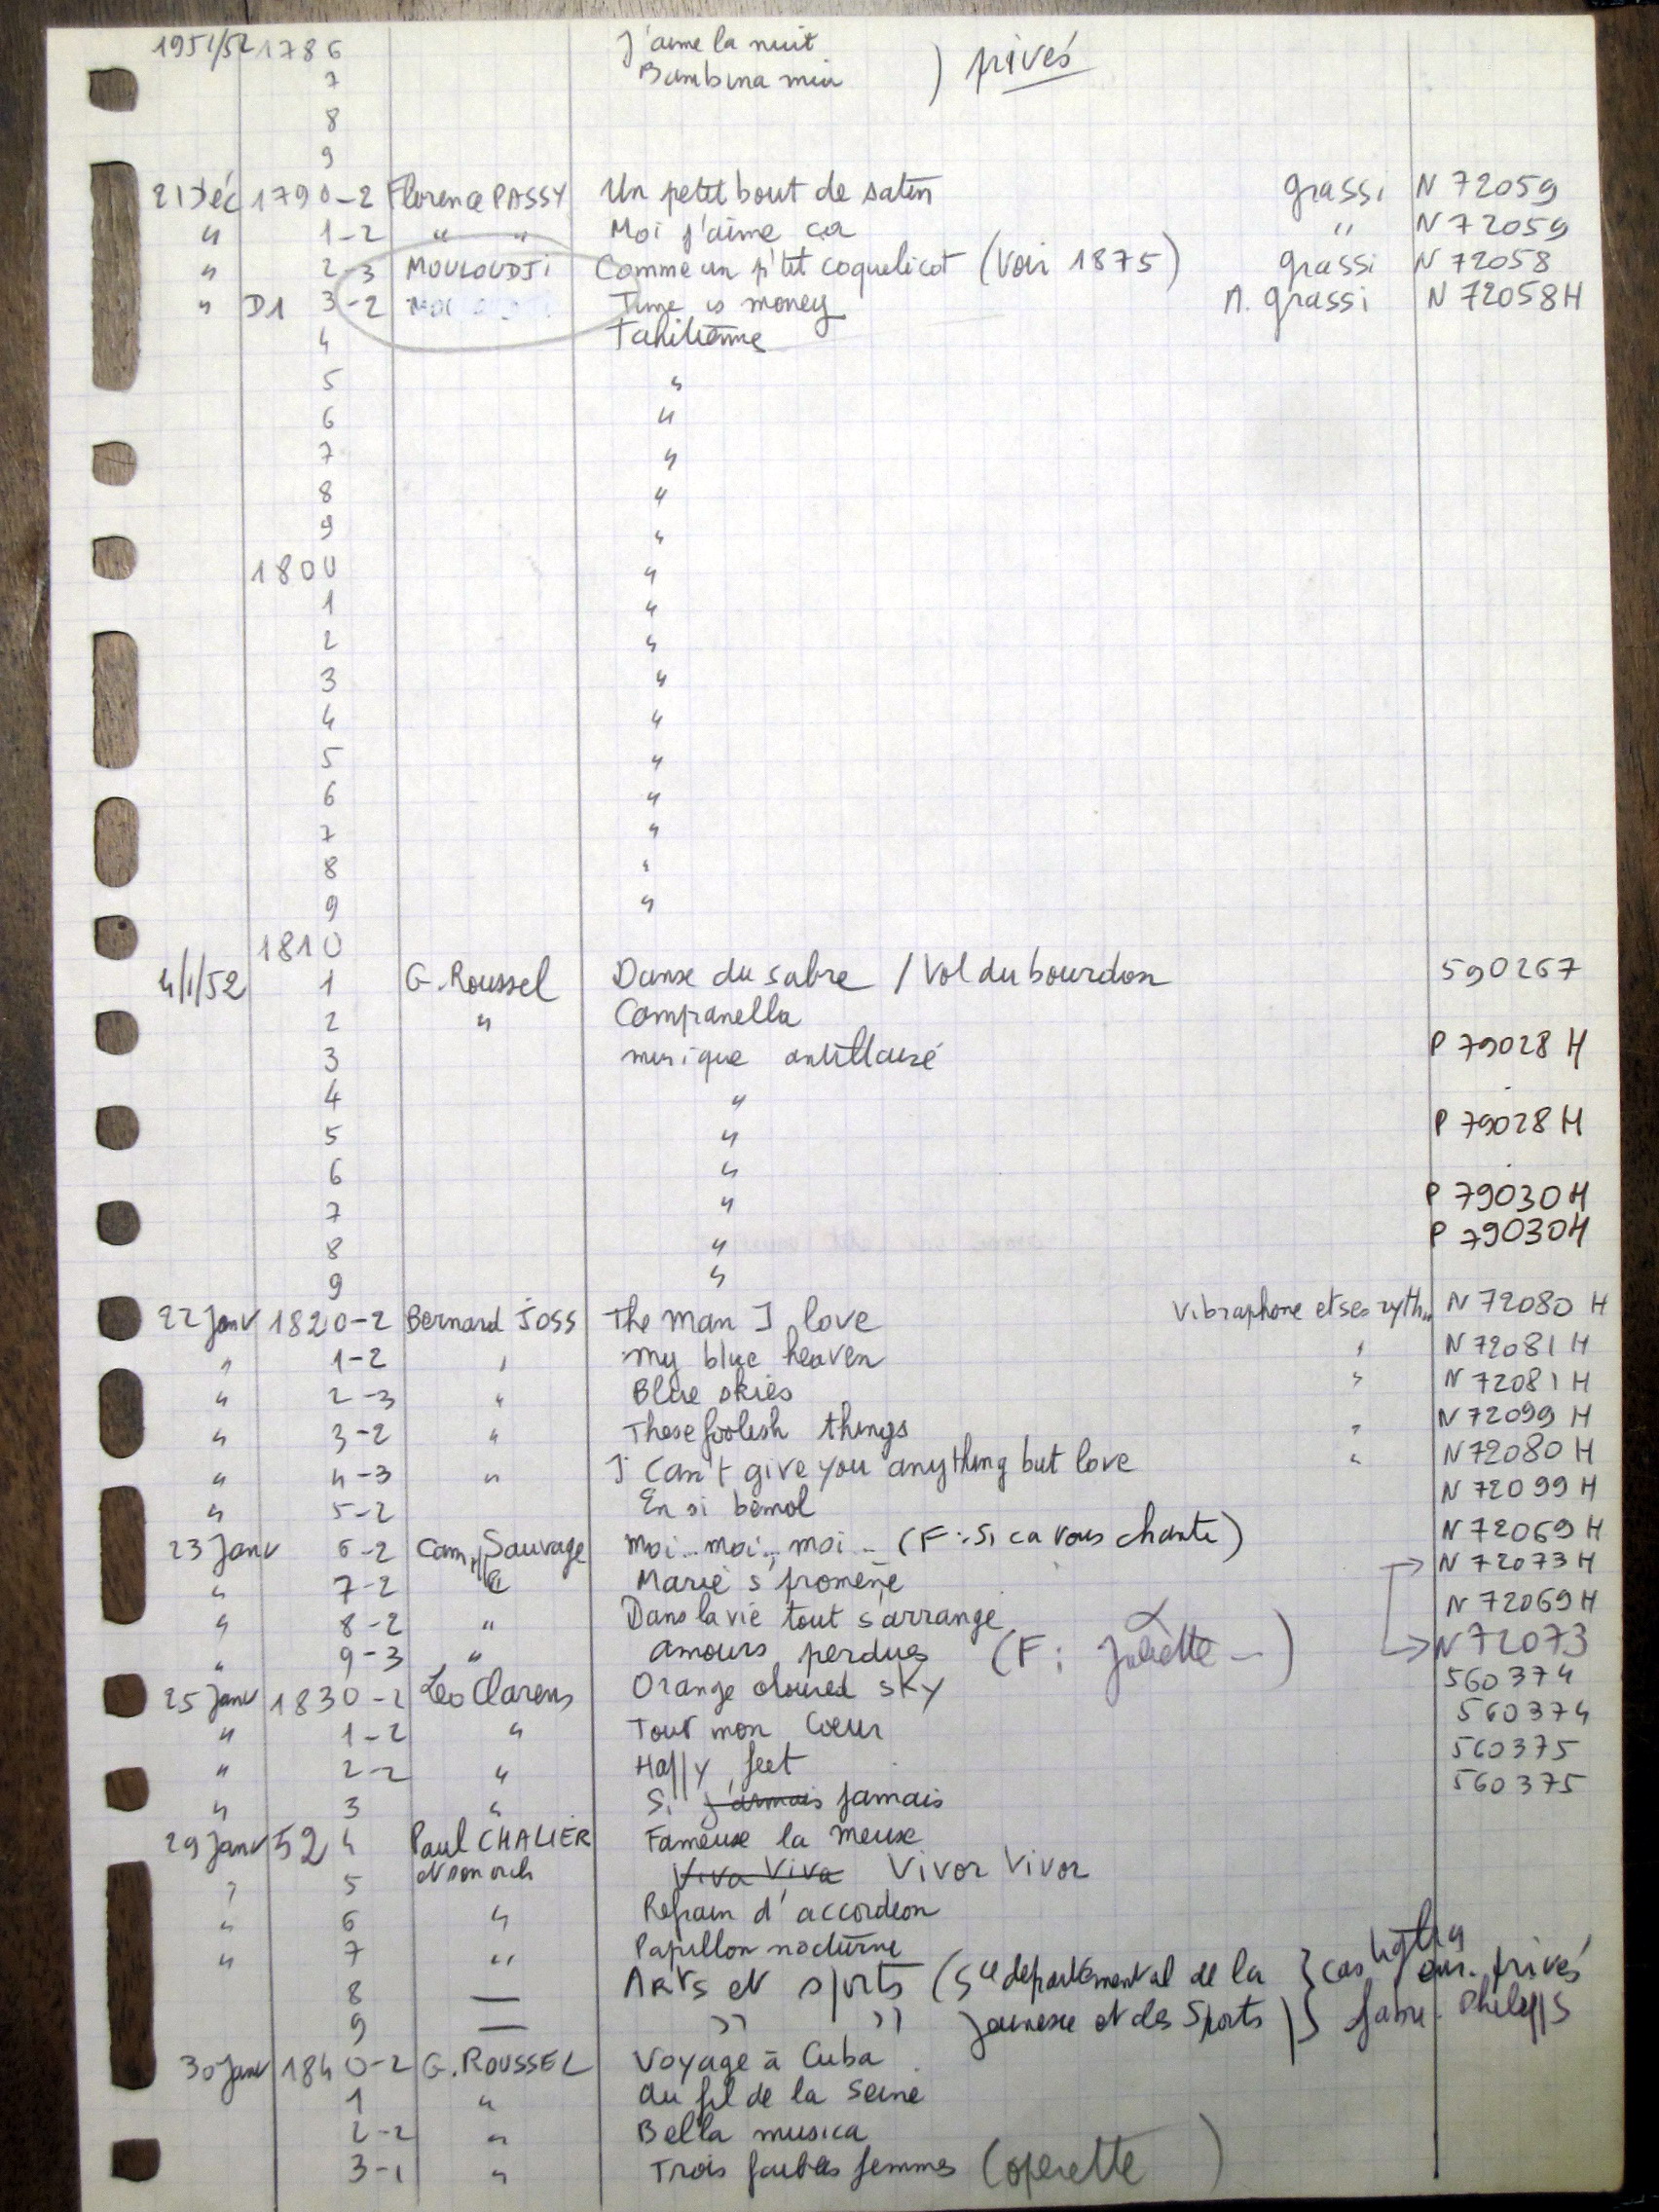 1951/52 1786 J'aime la nuit ) privés
7 Bambina mia
8
9
21 Déc 1790-2 Florence PASSY Un petit bout de satin grassi N 72059
" 1-2 " " Moi j'aime ca " N 72059
" 2-3 MOULOUDJI Comme un p'tit coquelicot (Voir 1875) grassi N 72058
" D1 3-2 Time is money A. grassi N 72058H
4 Tahitienne
5 "
6 "
7 "
8 "
9 "
1800 "
1 "
2 "
3 "
4 "
5 "
6 "
7 "
8 "
9 "
1810
4/1/52 1 G. Roussel Danse du sabre / Vol du bourdon 590267
2 " Campanella
3 musique antillaise P 79028 H
4 "
5 " P 79028 H
6 "
7 " P 79030 H
8 " P 79030H
9 "
22 Janv 1820-2 Bernard JOSS The man I love Vibraphone et ses ryth.. N 72080 H
" 1-2 " my blue heaven " N 72081 H
" 2-3 " Blue skies " N 72081 H
" 3-2 " These foolish things " N 72099 H
" 4-3 " I Can't give you anything but love " N 72080 H
" 5-2 En si bémol N 72099 H
23 Janv 6-2 Cam. Sauvage Moi.. moi.. moi.. (F: Si ca vous chante) N 72069 H
" 7-2 " Marie s'promène N 72073 H
" 8-2 " Dans la vie tout s'arrange N 72069 H
" 9-3 " amours perdues (F: Juliette --) N 72073
25 Janv 1830-2 Léo Clarens Orange oloured sky 560374
" 1-2 " Tout mon coeur 560374
" 2-2 " Happy feet 560375
" 3 " Si jamais jamais 560375
29 Janv 52 4 Paul CHALIER Fameuse la meuse
et son orch
" 5 Viva Viva Vivor Vivor
" 6 " Refrain d'accordeon
" 7 " Papillon nocturne
8 — Arts et sports (Sce departemental de la } privés
9 — " " Jeunesse et des Sports) } Philipps
30 Janv 1840-2 G. ROUSSEL Voyage à Cuba
1 " Au fil de la Seine
2-2 " Bella musica
3-1 " Trois faibles femmes (operette )